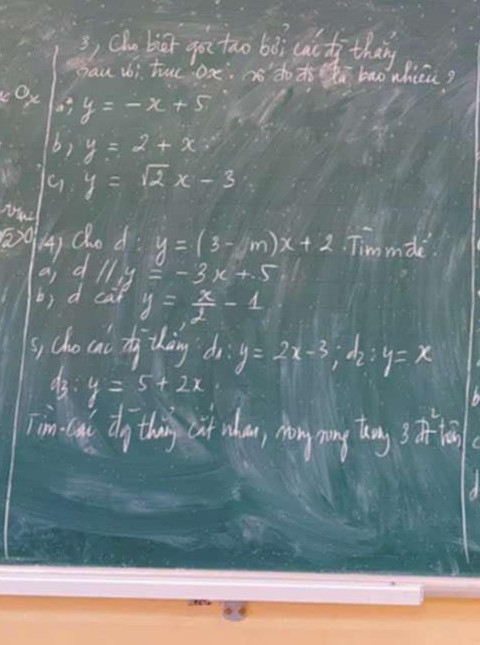 3, Cho biết góc tạo bởi các đg thẳng
sau với trục Ox. số đo đó là bao nhiêu?
Ox
a, y = -x + 5
b, y = 2 + x.
c, y = √2 x - 3
4) Cho d: y = (3 - m)x + 2. Tìm m để.
a, d // y = -3x + 5.
b, d cắt y = x/2 - 1
5, Cho các đg thẳng d1: y = 2x - 3; d2: y = x
d3: y = 5 + 2x.
Tìm các đg thẳng cắt nhau, song song trong 3 đt² trên